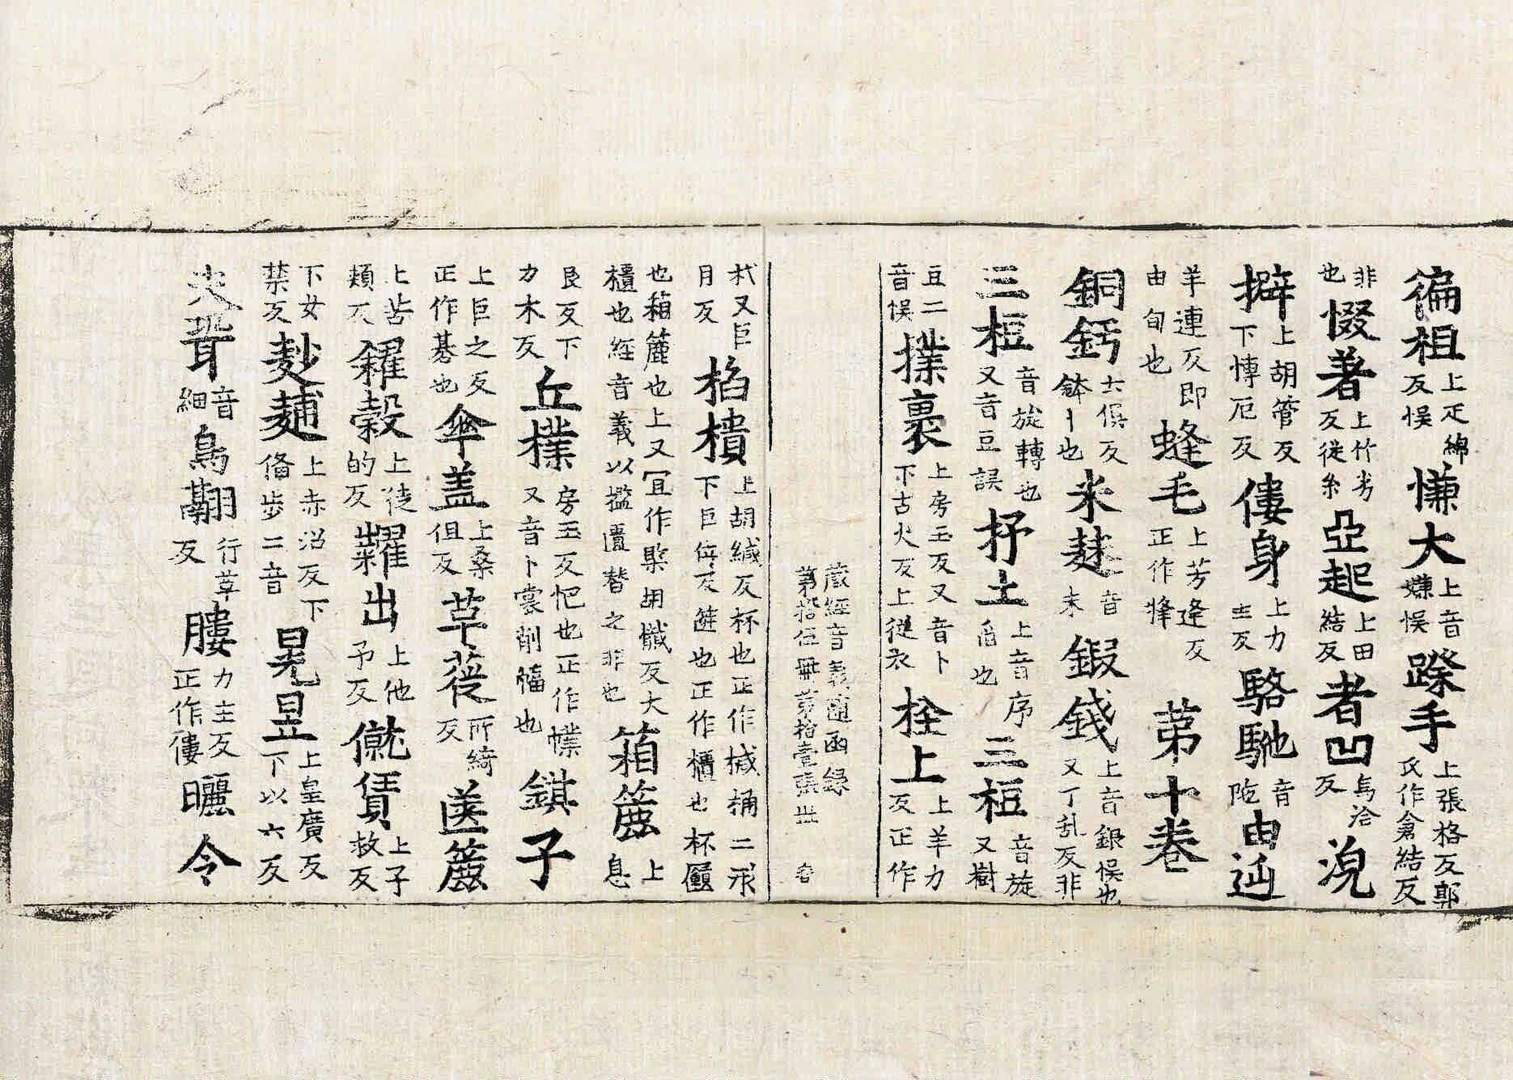 徧袒上疋綿反悞慊大上音嫌悞蹂手上張格反郭氏作倉結反
非也惙著上竹劣反從糸亞起上田結反者凹烏洽反涀
擗上胡管反下慱厄反僂身上力主反駱馳音陁由延
羊連反即由旬也蜂毛上芳逢反正作㷨第十卷
銅鈣士俱反鉢丨也米麩音末鍜錢上音銀悞也又丁乱反非
三桓音旋轉也又音豆誤抒土上音序舀也三桓音旋又樹
豆二音悞襆裹上房玉反又音卜下古火反上從衣栓上上羊力反正作
藏經音義隨函錄
第拾伍冊第拾壹張世
杙又巨月反㮀樻上胡緘反杯也正作椷桶二形下巨位反篋也正作櫃也杯匱
也箱簏也上又宜作㮰胡檻反大櫃也經音義以槛匱替之非也箱簏上息
良反下力木反丘襆房玉反帊也正作幞又音卜裳削幅也鎖子
上巨之反正作棊也傘盖上桑但反草蓰所綺反篋簏
上苦頬反糴穀上徒的反糶出上他予反僦賃上子救反
下女禁反麨䴺上赤沼反下俻步二音晃昱上皇廣反下以六反
夫聟音細鳥翮行草反膢力主反正作僂曬令